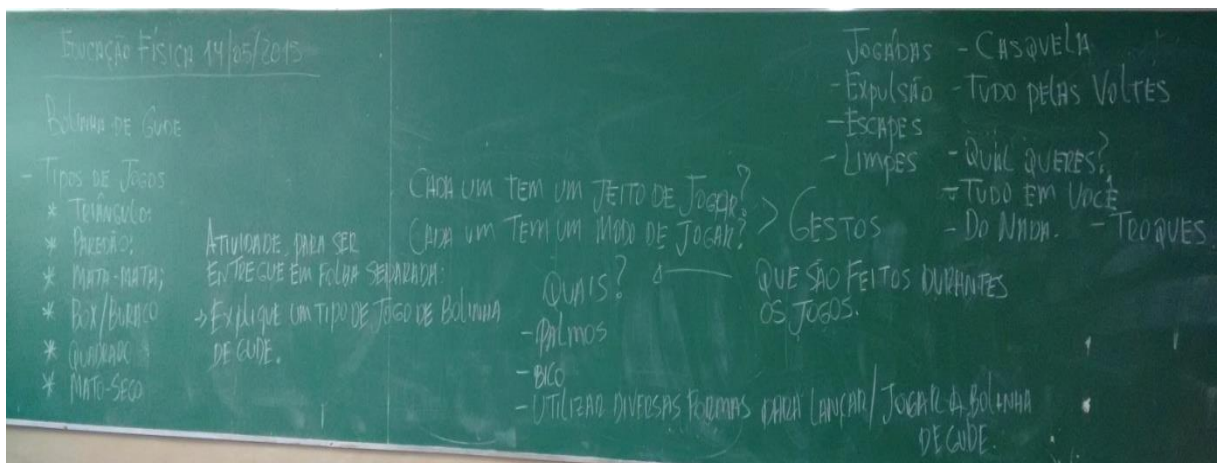 Educação Física 14/05/2015
Bolinha de Gude
- Tipos de Jogos
* Triângulo:
* Paredão:
* Mata-Mata;
* Box/Buraco
* Quadrado
* Mato-Seco
Atividade para ser
entregue em folha separada:
→ Explique um tipo de jogo de bolinha
de gude.
Cada um tem um jeito de jogar?
Cada um tem um modo de jogar? > Gestos
que são feitos durantes
os jogos.
Quais?
- Palmos
- Bico
- Utilizar diversas formas para lançar/jogar a bolinha
de gude.
Jogadas
- Expulsão
- Escapes
- Limpes
- Casquela
- Tudo pelas voltes
- Qual queres?
- Tudo em você
- Do nada. - Troques